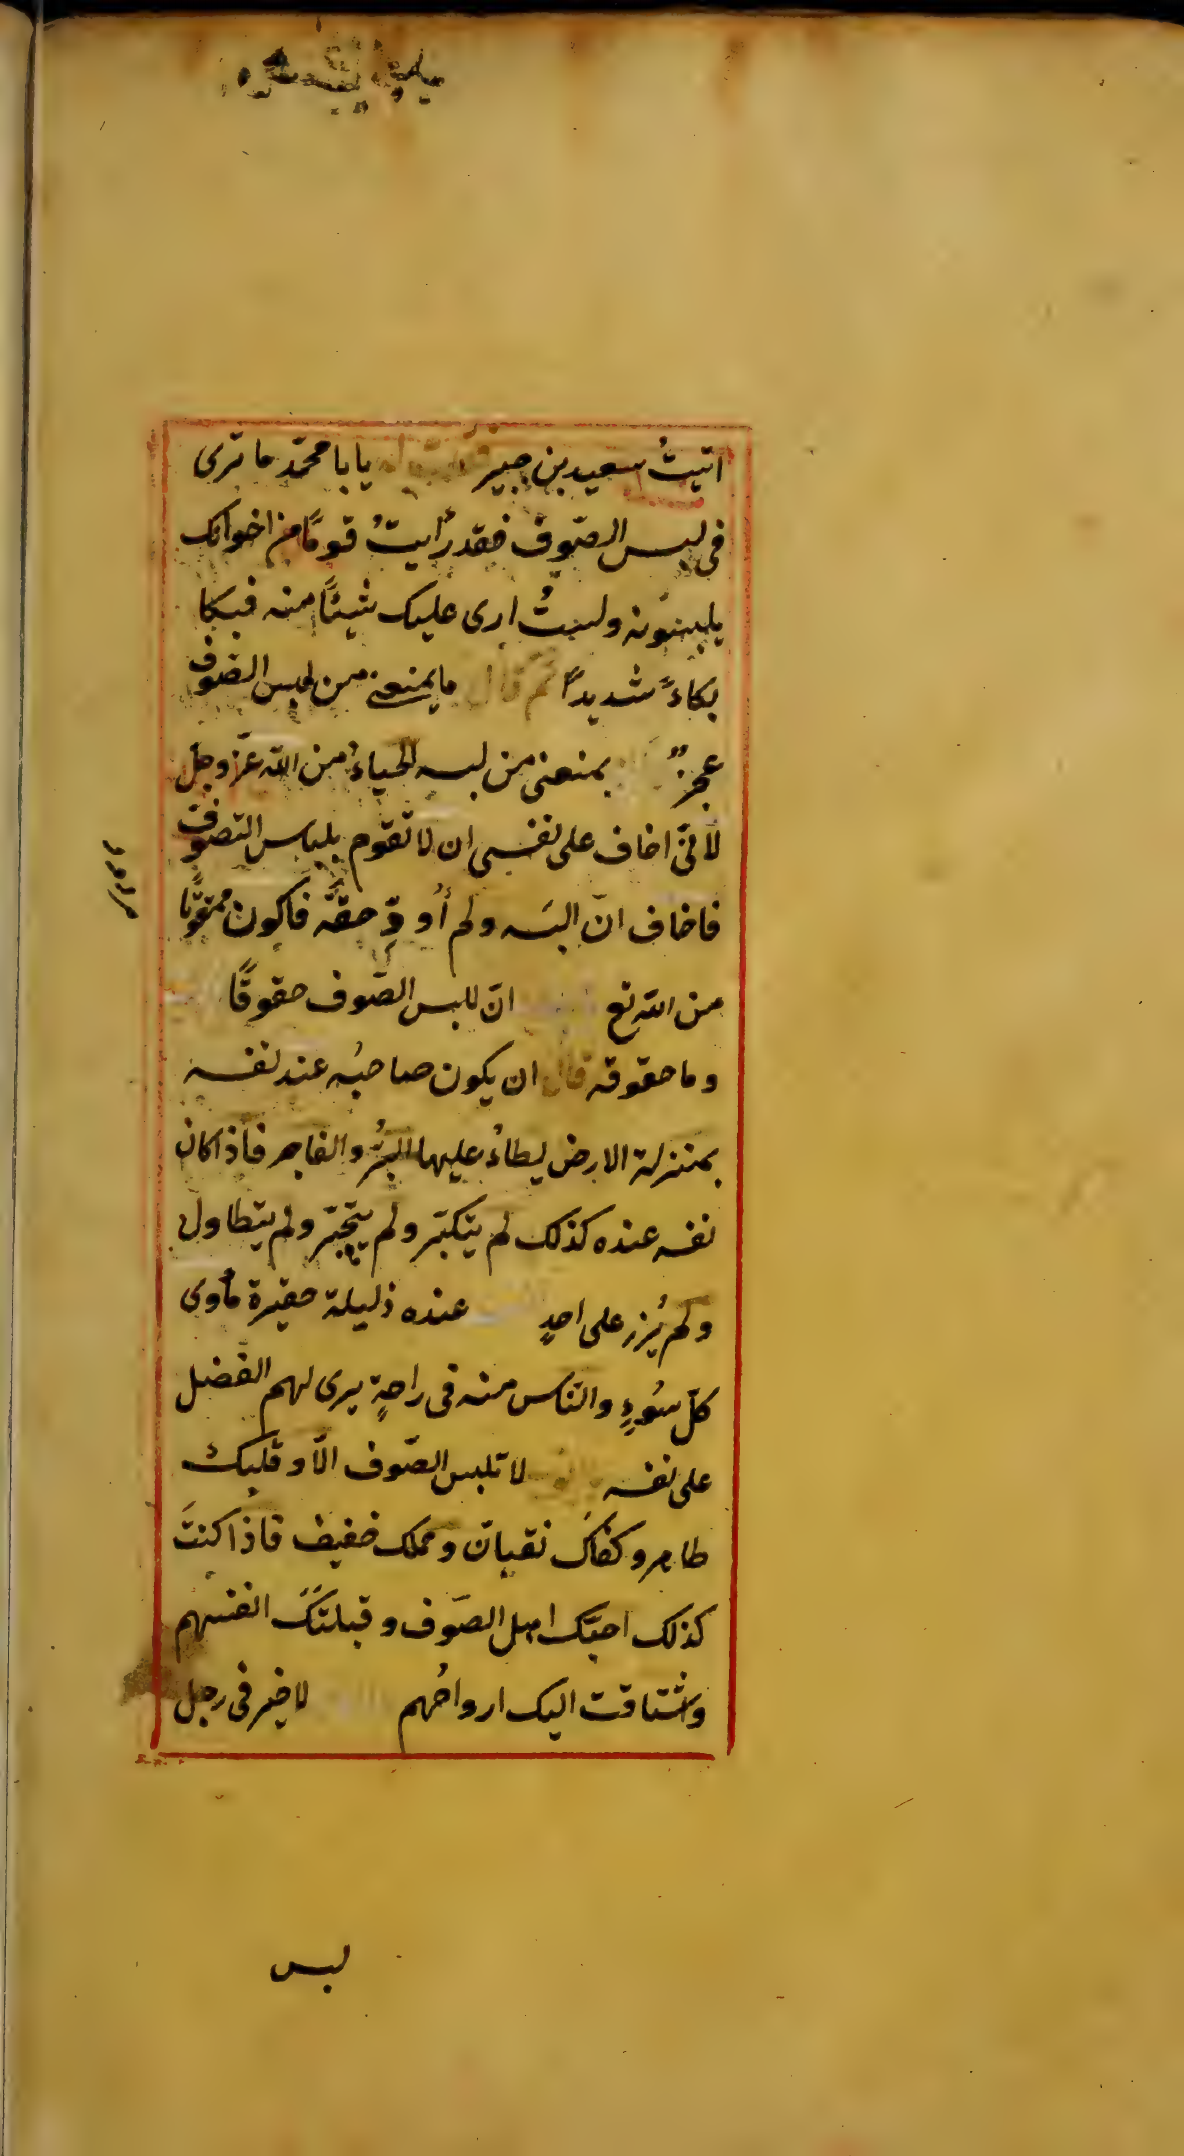 اتيتُ سعيد بن جبير فقلت له يابا محمّد ما ترى
فى لبس الصّوف فقد رأيتُ قومًا من اخوانك
يلبسونه ولستُ ارى عليك شيئًا منه فبكا
بكاءً شديدًا ثم قال ما يمنعنى من لبس الصّوف
عجزٌ يمنعنى من لبسه الحياءُ من الله عزّ وجل
لانّى اخاف على نفسى ان لا تقوم بلباس التصوّف
فاخاف انّ البسَه ولم أُودِّ حقّه فاكون ممقوتًا
من الله تع انّ للبس الصّوف حقوقًا
وما حقوقه قال ان يكون صاحبُه عند نفسه
بمنزلة الارض يطاءُ عليها البرُّ والفاجر فاذا كان
نفسه عنده كذلك لم يتكبّر ولم يتجبّر ولم يتطاول
ولم يُزر على احدٍ عنده ذليلة حقيرة مأوى
كلّ سُوءٍ والنّاس منه فى راحةٍ يرى لهم الفضل
على نفسه لا تلبس الصّوف الّا وقلبك
طاهر وكفّاك نقيان وحملك خفيف فاذا كنتَ
كذلك احبّك اهل الصّوف وقبلتك انفسهم
واشتاقت اليك ارواحُهم لا خير فى رجل
لبس